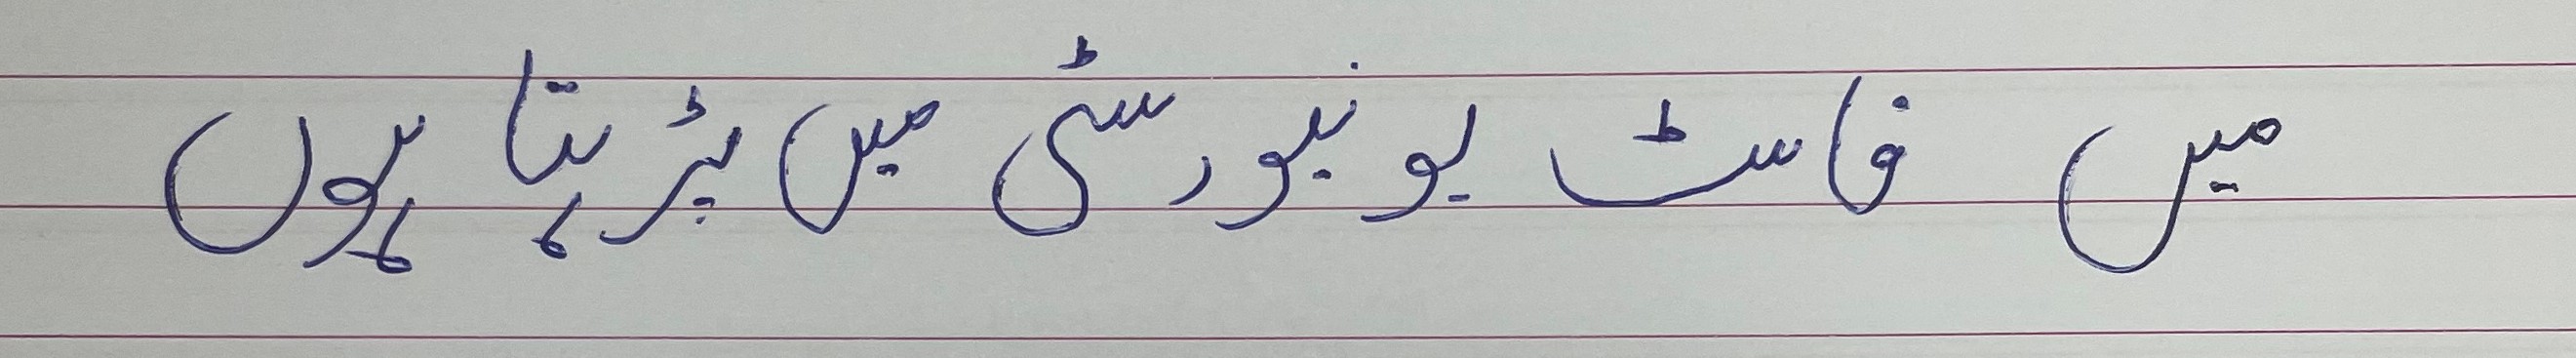 میں فاسٹ یونیورسٹی میں پڑہتا ہوں